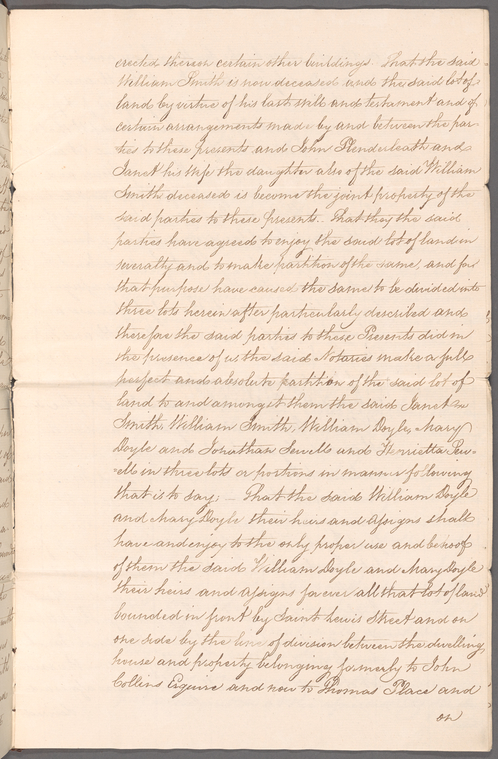 erected thereon certain other buildings. That the said
William Smith is now deceased and the said lot of
land by virtue of his last will and testament and of
certain arrangements made by and between the par
ties to these Presents and John Plenderleath and
Janet his wife the daughter also of the said William
Smith deceased is become the joint property of the
said parties to these presents. That they the said
parties have agreed to enjoy the said lot of land in
severalty and to make partition of the same, and for
that purpose have caused the same to be divided into
three lots herein after particularly described and
therefore the said parties to these Presents did in
the presence of us the said Notaries make a full
perfect and absolute partition of the said lot of
land to and amongst them the said Janet
Smith, William Smith, William Doyle, Mary
Doyle and Jonathan Sewell and Henrietta Sew
ell in three lots or portions in manner following
that is to say; – That the said William Doyle
and Mary Doyle their heirs and assigns shall
have and enjoy to the only proper use and behoof
of them the said William Doyle and Mary Doyle
their heirs and assigns forever all that lot of land
bounded in front by Saint Lewis Street and on
one side by the line of division between the dwelling
house and property belonging formerly to John
Collins Esquire and now to Thomas Place and
on